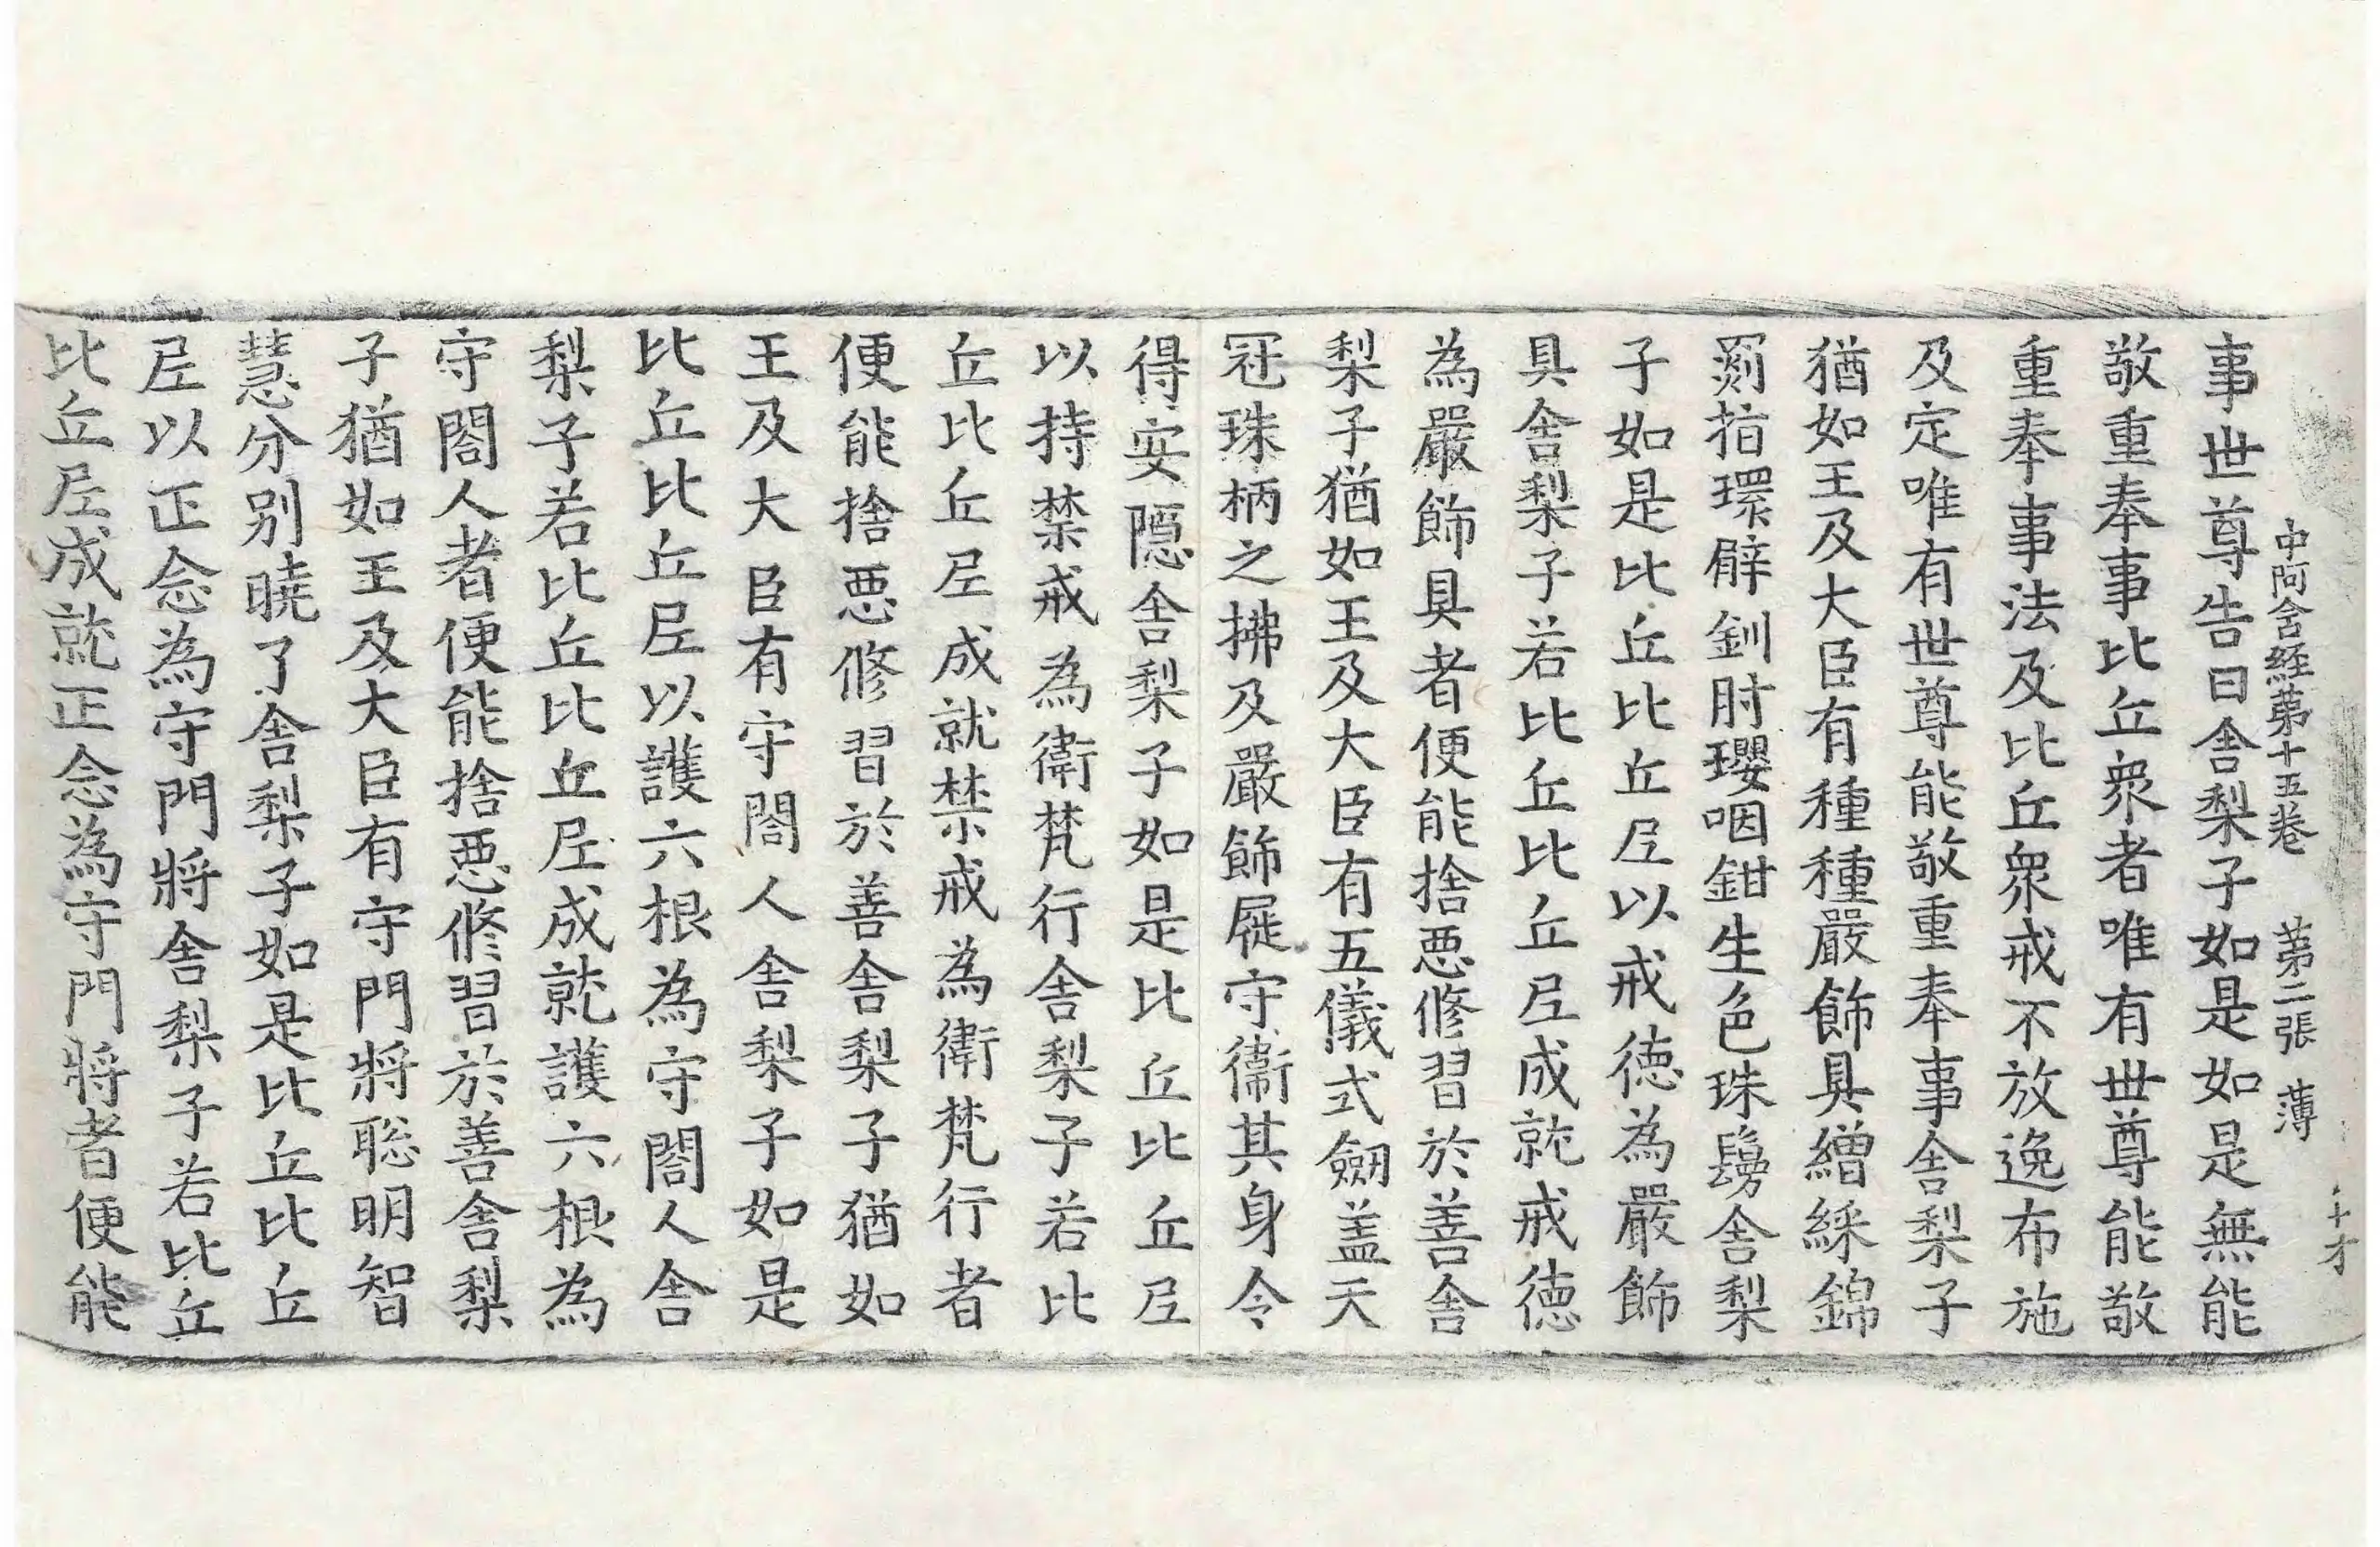 中阿含經第十五卷 第二張 薄
事世尊告曰舍梨子如是如是無能
敬重奉事比丘衆者唯有世尊能敬
重奉事法及比丘衆戒不放逸布施
及定唯有世尊能敬重奉事舍梨子
猶如王及大臣有種種嚴飾具繒綵錦
罽指環臂釧肘瓔咽鉗生色珠鬘舍梨
子如是比丘比丘尼以戒德為嚴飾
具舍梨子若比丘比丘尼成就戒德
為嚴飾具者便能捨惡修習於善舍
梨子猶如王及大臣有五儀式劒盖天
冠珠柄之拂及嚴飾屣守衞其身令
得安隱舍梨子如是比丘比丘尼
以持禁戒為衛梵行舍梨子若比
丘比丘尼成就禁戒為衛梵行者
便能捨惡修習於善舍梨子猶如
王及大臣有守閤人舍梨子如是
比丘比丘尼以護六根為守閤人舍
梨子若比丘比丘尼成就護六根為
守閤人者便能捨惡修習於善舍梨
子猶如王及大臣有守門將聡明智
慧分別曉了舍梨子如是比丘比丘
尼以正念為守門將舍梨子若比丘
比丘尼成就正念為守門將者便能